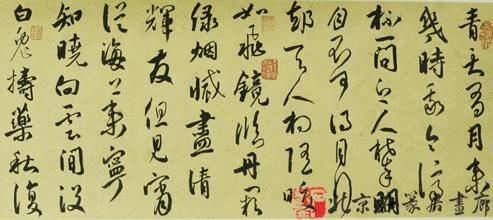 青天有月来
幾時我今停
杯一問之人攀明
月不可得月行
却与人相随皎
如飛鏡臨丹闕
緑烟滅盡清
輝发但見宵
從海上来寧
知曉向雲間没
白兔擣藥秋復
畫廊